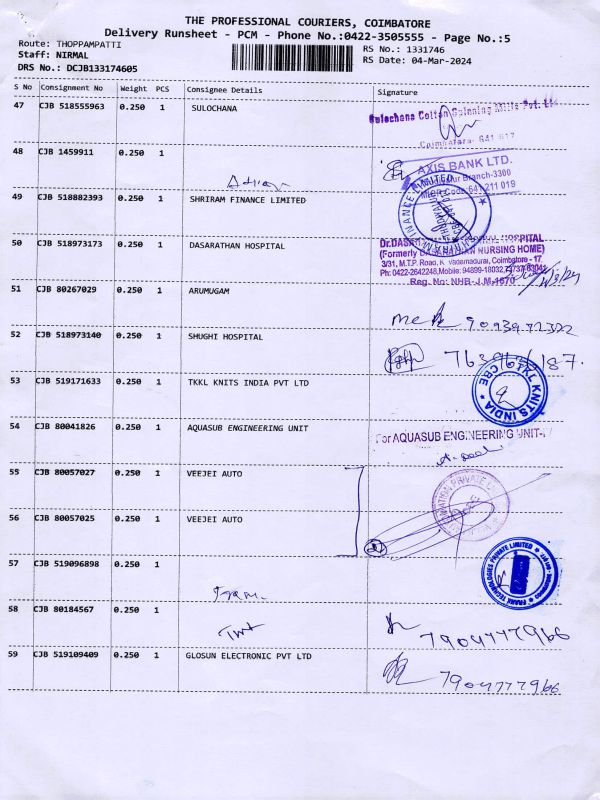 THE PROFESSIONAL COURIERS, COIMBATORE
Delivery Runsheet - PCM - Phone No.:0422-3505555 - Page No.:5
Route: THOPPAMPATTI
RS No.: 1331746
Staff: NIRMAL
RS Date: 04-Mar-2024
DRS No.: DCJB133174605
S No Consignment No Weight PCS Consignee Details Signature
47 CJB 518555963 0.250 1 SULOCHANA
Sulochana Cotton Spinning Mills Pvt. Ltd
Coimbatore- 641 617
48 CJB 1459911 0.250 1
AXIS BANK LTD.
Branch-3300
MICR Code 641 211 019
49 CJB 518882393 0.250 1 SHRIRAM FINANCE LIMITED
FINANCE LIMITED
50 CJB 518973173 0.250 1 DASARATHAN HOSPITAL
HOSPITAL
(Formerly NURSING HOME)
3/31, M.T.P. Road, K. Vadamadurai, Coimbatore - 17.
Ph: 0422-2642248, Mobile: 94899-18032,
Reg. No: NHB-J.M.4670
51 CJB 80267029 0.250 1 ARUMUGAM
52 CJB 518973140 0.250 1 SHUGHI HOSPITAL
53 CJB 519171633 0.250 1 TKKL KNITS INDIA PVT LTD
KNITS INDIA
CBE
54 CJB 80041826 0.250 1 AQUASUB ENGINEERING UNIT
For AQUASUB ENGINEERING UNIT-
55 CJB 80057027 0.250 1 VEEJEI AUTO
56 CJB 80057025 0.250 1 VEEJEI AUTO
57 CJB 519096898 0.250 1
TECHNOLOGIES PRIVATE LIMITED
58 CJB 80184567 0.250 1
7904777966
59 CJB 519109409 0.250 1 GLOSUN ELECTRONIC PVT LTD
7904777966